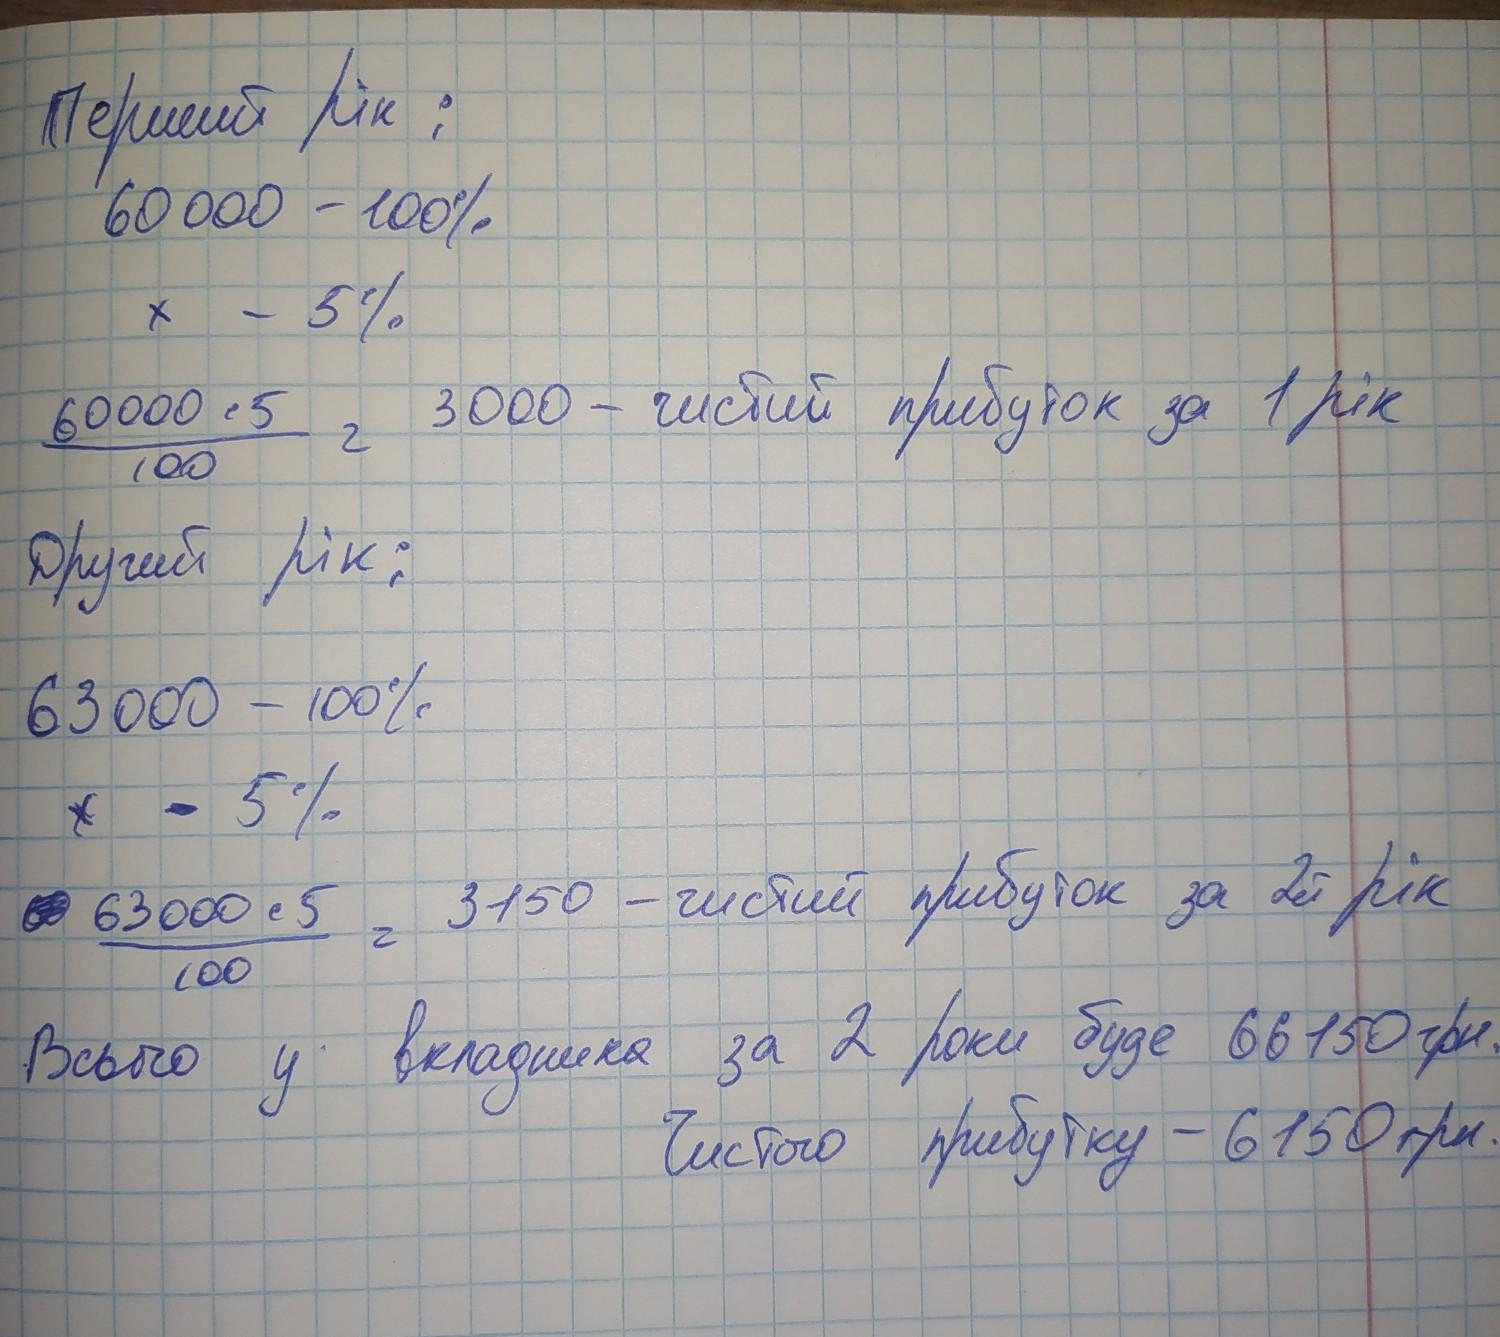 Перший рік:
60000 - 100%
x - 5%
60000 · 5 / 100 = 3000 - чистий прибуток за 1 рік
Другий рік:
63000 - 100%
x - 5%
63000 · 5 / 100 = 3150 - чистий прибуток за 2й рік
Всього у вкладника за 2 роки буде 66150 грн.
Чистого прибутку - 6150 грн.